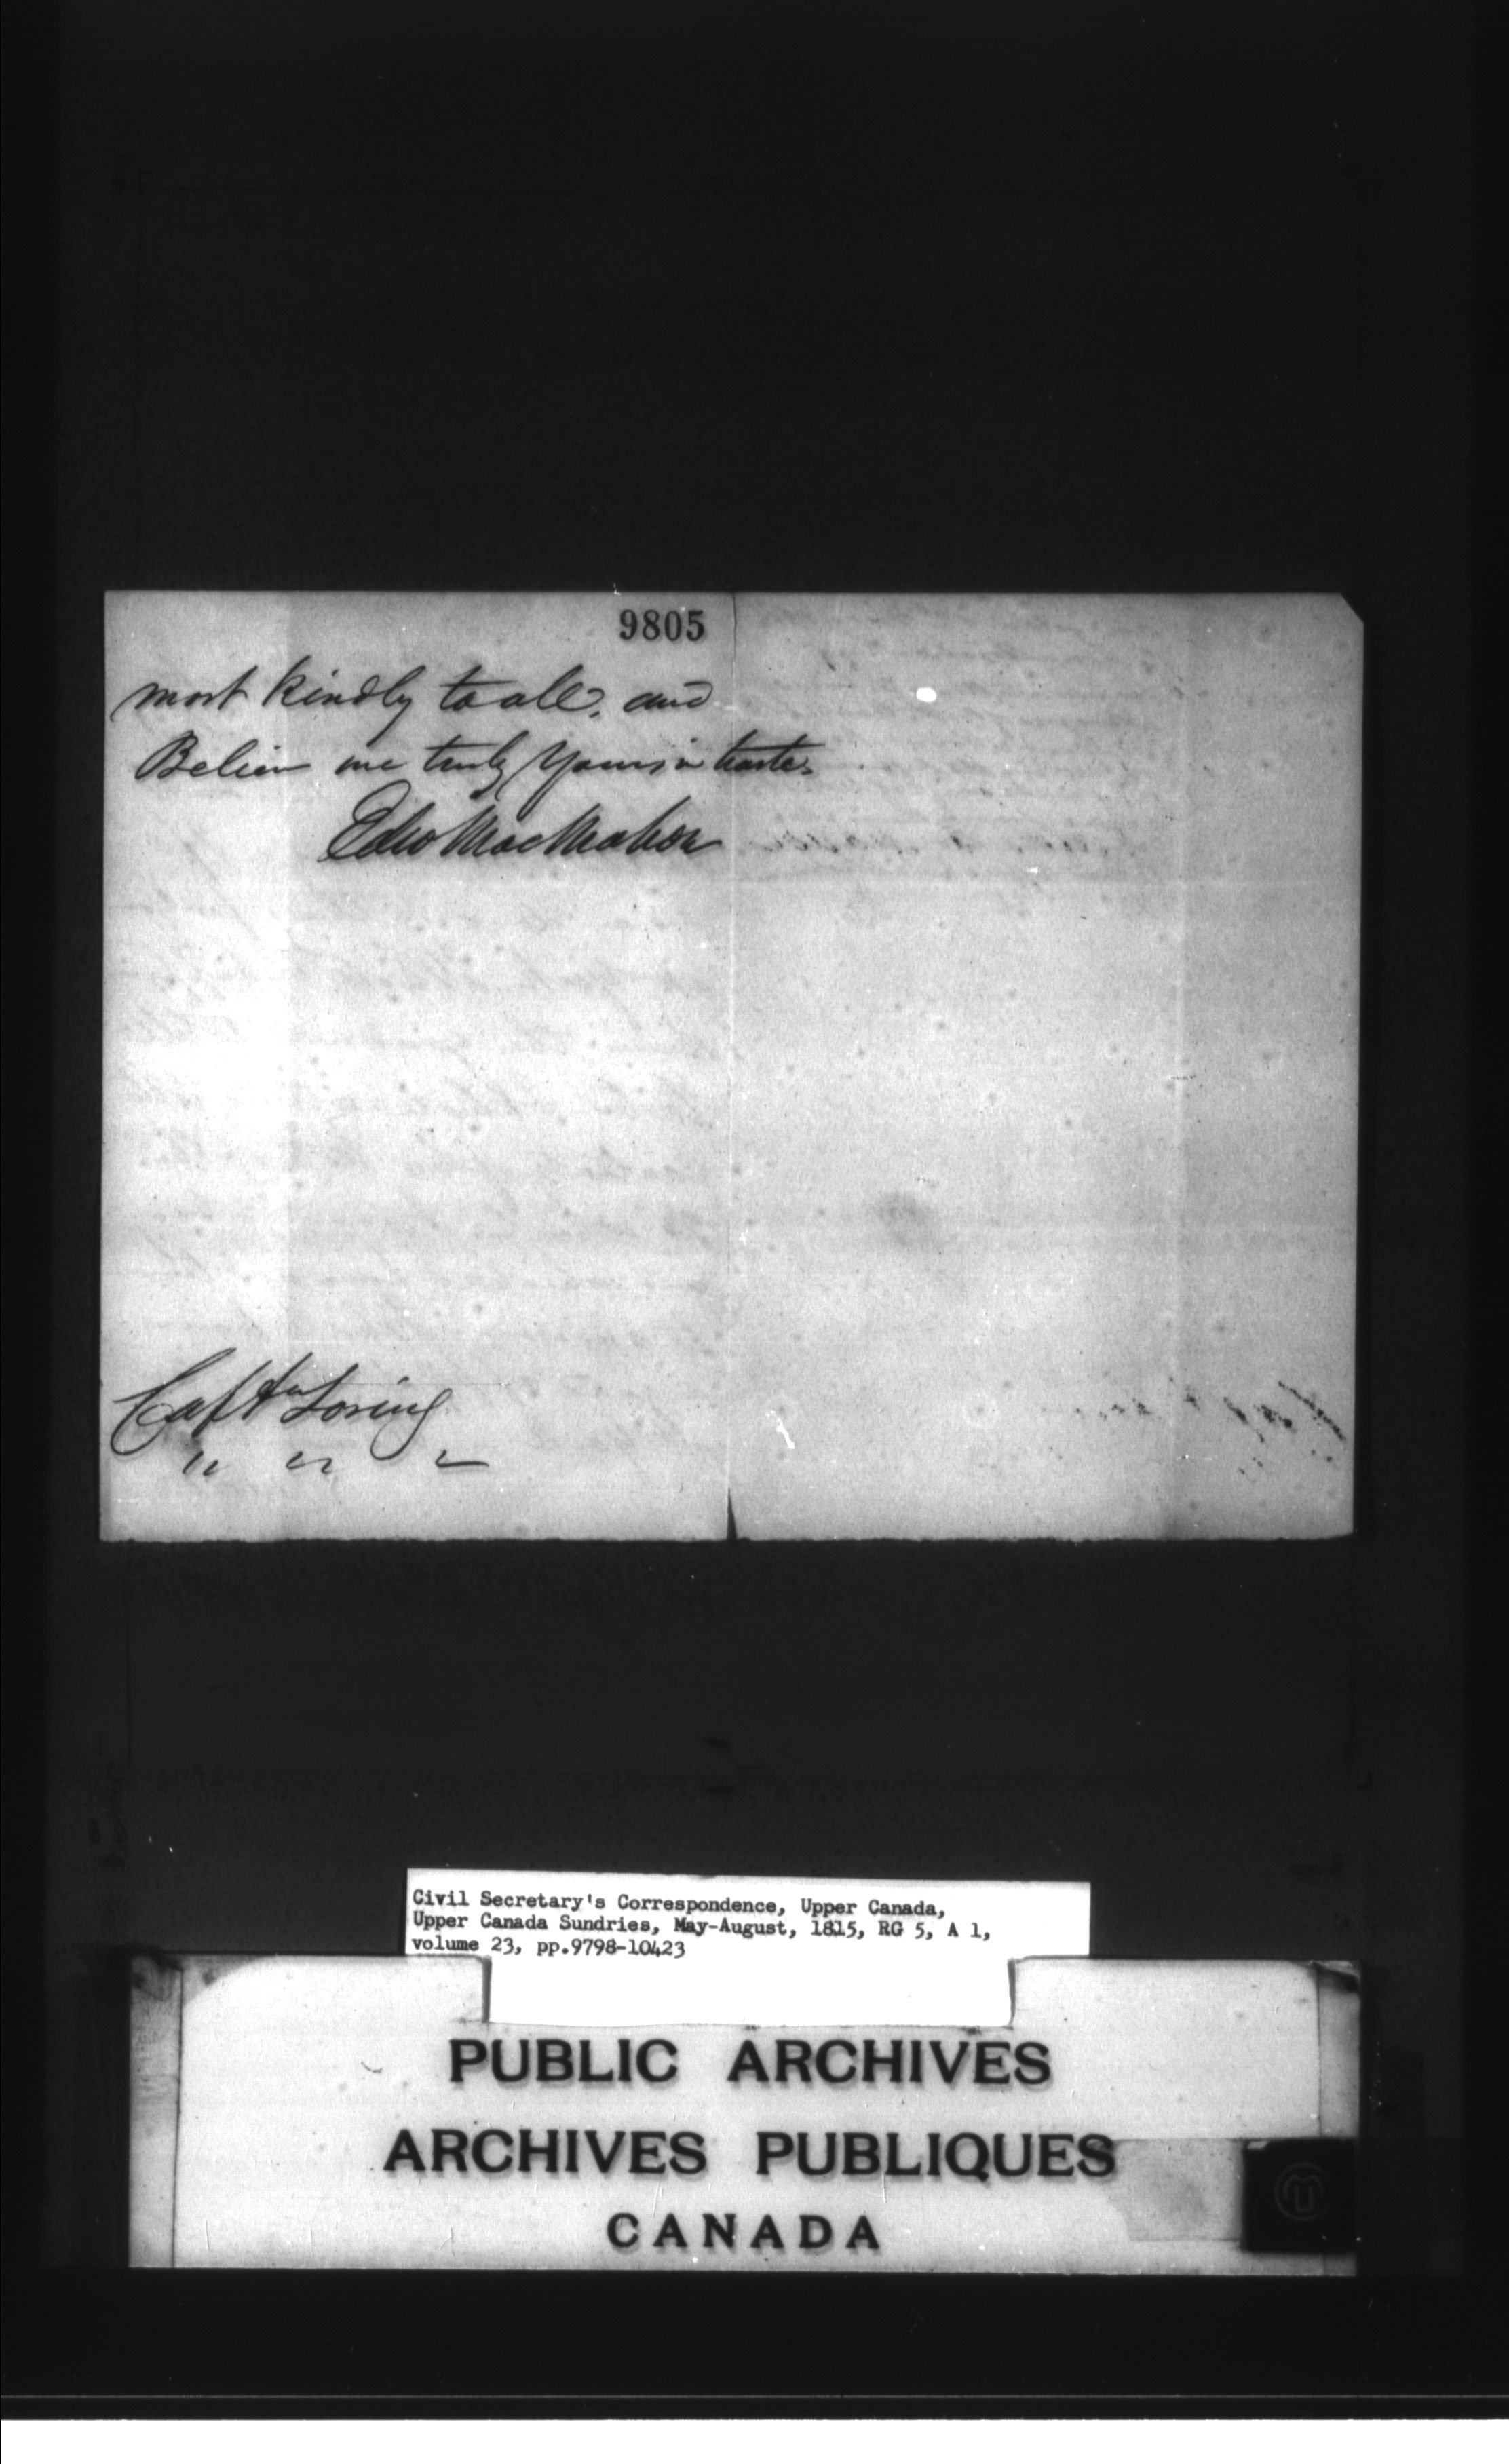 9805
most kindly to all, and
Believe me truly Yours in haste.
Edw MacMahon
Captn Loring
" " "
Civil Secretary's Correspondence, Upper Canada,
Upper Canada Sundries, May-August, 1815, RG 5, A 1,
volume 23, pp.9798-10423
PUBLIC ARCHIVES
ARCHIVES PUBLIQUES
CANADA